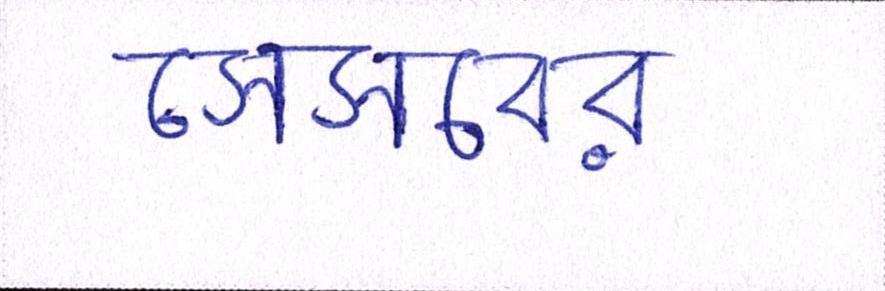 সেসবের